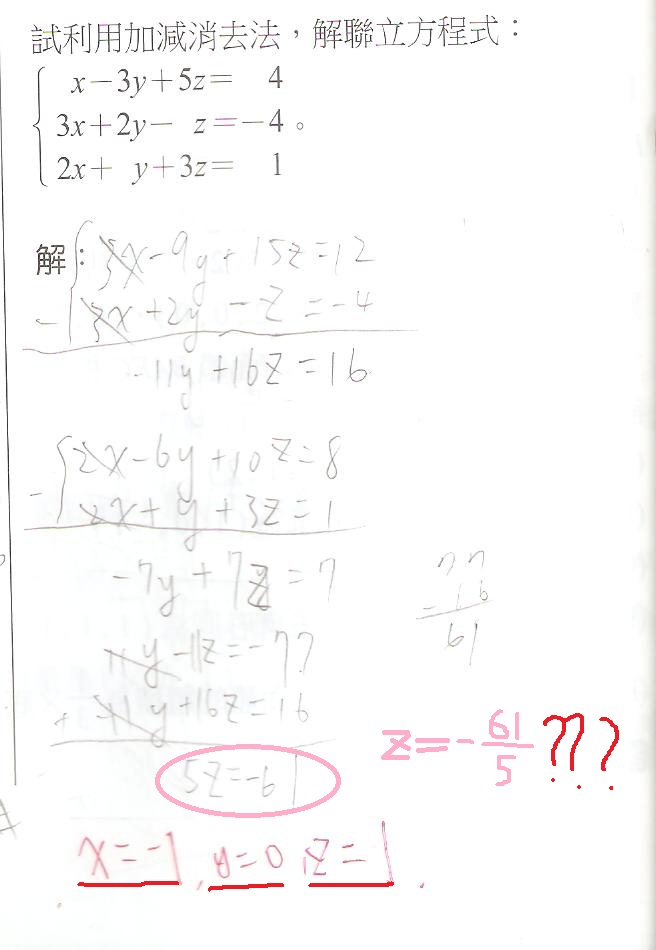 試利用加減消去法，解聯立方程式：
x－3y＋5z＝ 4
3x＋2y－ z＝－4。
2x＋ y＋3z＝ 1
解：3x-9y+15z=12
- 3x+2y-z=-4
-11y+16z=16
2x-6y+10z=8
- 2x+y+3z=1
-7y+7z=7
77
-16
61
11y-11z=-77
+ -11y+16z=16
5z=-61
z=-61/5???
x=-1, y=0, z=1.